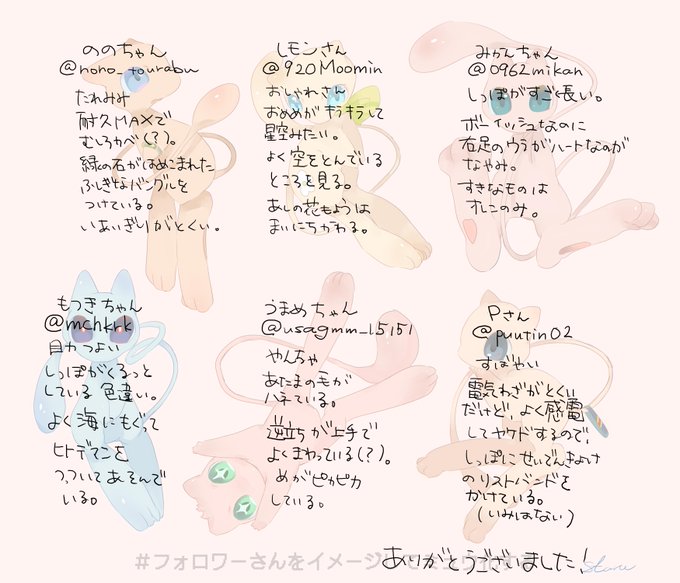 ののちゃん
@nono_tourabu
たれみみ
耐久MAXで
むしろかべ(?)。
緑の石がはめこまれた
ふしぎなバングルを
つけている。
いあいぎりがとくい。
レモンさん
@920Moomin
おしゃれさん
おめめがキラキラして
星空みたい。
よく空をとんでいる
ところを見る。
あしの花もようは
まいにちかわる。
みかんちゃん
@0962mikan
しっぽがすごく長い。
ボーイッシュなのに
右足のウラがハートなのが
なやみ。
すきなものは
オレンのみ。
もつきちゃん
@mchkrk
目力つよい
しっぽがくるっと
している色違い。
よく海にもぐって
ヒトデマンを
つついてあそんで
いる。
うまめちゃん
@usagmm_15151
やんちゃ
あたまの毛が
ハネている。
逆立ちが上手で
よくまわっている(?)。
めがピカピカ
している。
Pさん
@puutin02
すばやい
電気わざがとくい
だけど、よく感電
してヤケドするので、
しっぽにせいでんきよけ
のリストバンドを
かけている。
(いみはない)
#フォロワーさんをイメージ
ありがとうございました!